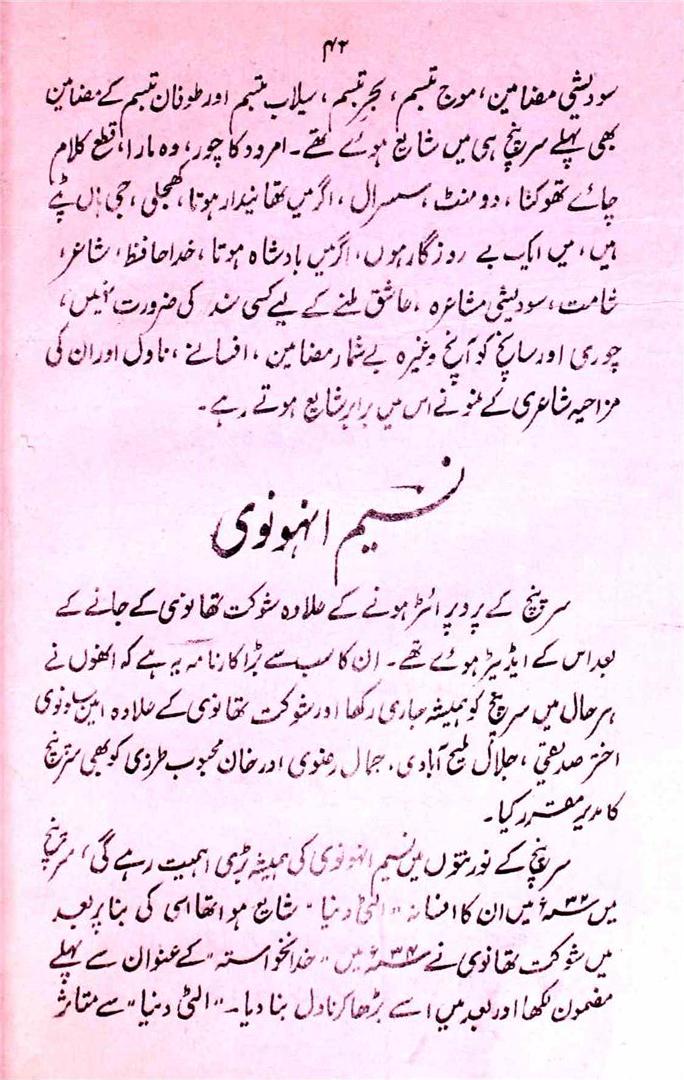 ۴۲
سودیشی مضامین، موج تبسم، بحر تبسم، سیلاب تبسم اور طوفان تبسم کے مضامین
بھی پہلے سرپنچ ہی میں شایع ہوئے تھے۔ امرود کا چور، وہ مارا، قطع کلام
جائے تھوکنا، دو منٹ، سسرال، اگر میں تھانیدار ہوتا، کھجلی، حجی ہاں پٹے
ہیں، میں ایک بے روزگار ہوں، اگر میں بادشاہ ہوتا، خدا حافظ، شاعر،
شامت، سودیشی مشاعرہ، عاشق بلنے کے لیے کسی سند کی ضرورت نہیں،
چوری اور سانچ کو آنچ وغیرہ بے شمار مضامین، افسانے، ناول اور ان کی
مزاحیہ شاعری کے نمونے اس میں برابر شایع ہوتے رہے۔
نسیم انہونوی
سرپنچ کے پروپرائٹر ہونے کے علاوہ شوکت تھانوی کے جانے کے
بعد اس کے ایڈیٹر ہوئے تھے۔ ان کا سب سے بڑا کارنامہ یہ ہے کہ انھوں نے
ہر حال میں سرپنچ کو ہمیشہ جاری رکھا اور شوکت تھانوی کے علاوہ امین سلونوی
اختر صدیقی، جلال ملیح آبادی، جمال رضوی اور خان محبوب طرزی کو بھی سرپنچ
کا مدیر مقرر کیا۔
سرپنچ کے نورتنوں میں نسیم انہونوی کی ہمیشہ بڑی اہمیت رہے گی، سرپنچ
میں ۳۲ء میں ان کا افسانہ "الٹی دنیا" شایع ہوا تھا اسی کی بنا پر بعد
میں شوکت تھانوی نے ۳۴ء میں "خدانخواستہ" کے عنوان سے پہلے
مضمون لکھا اور بعد میں اسے بڑھا کر ناول بنا دیا۔ "الٹی دنیا" سے متاثر